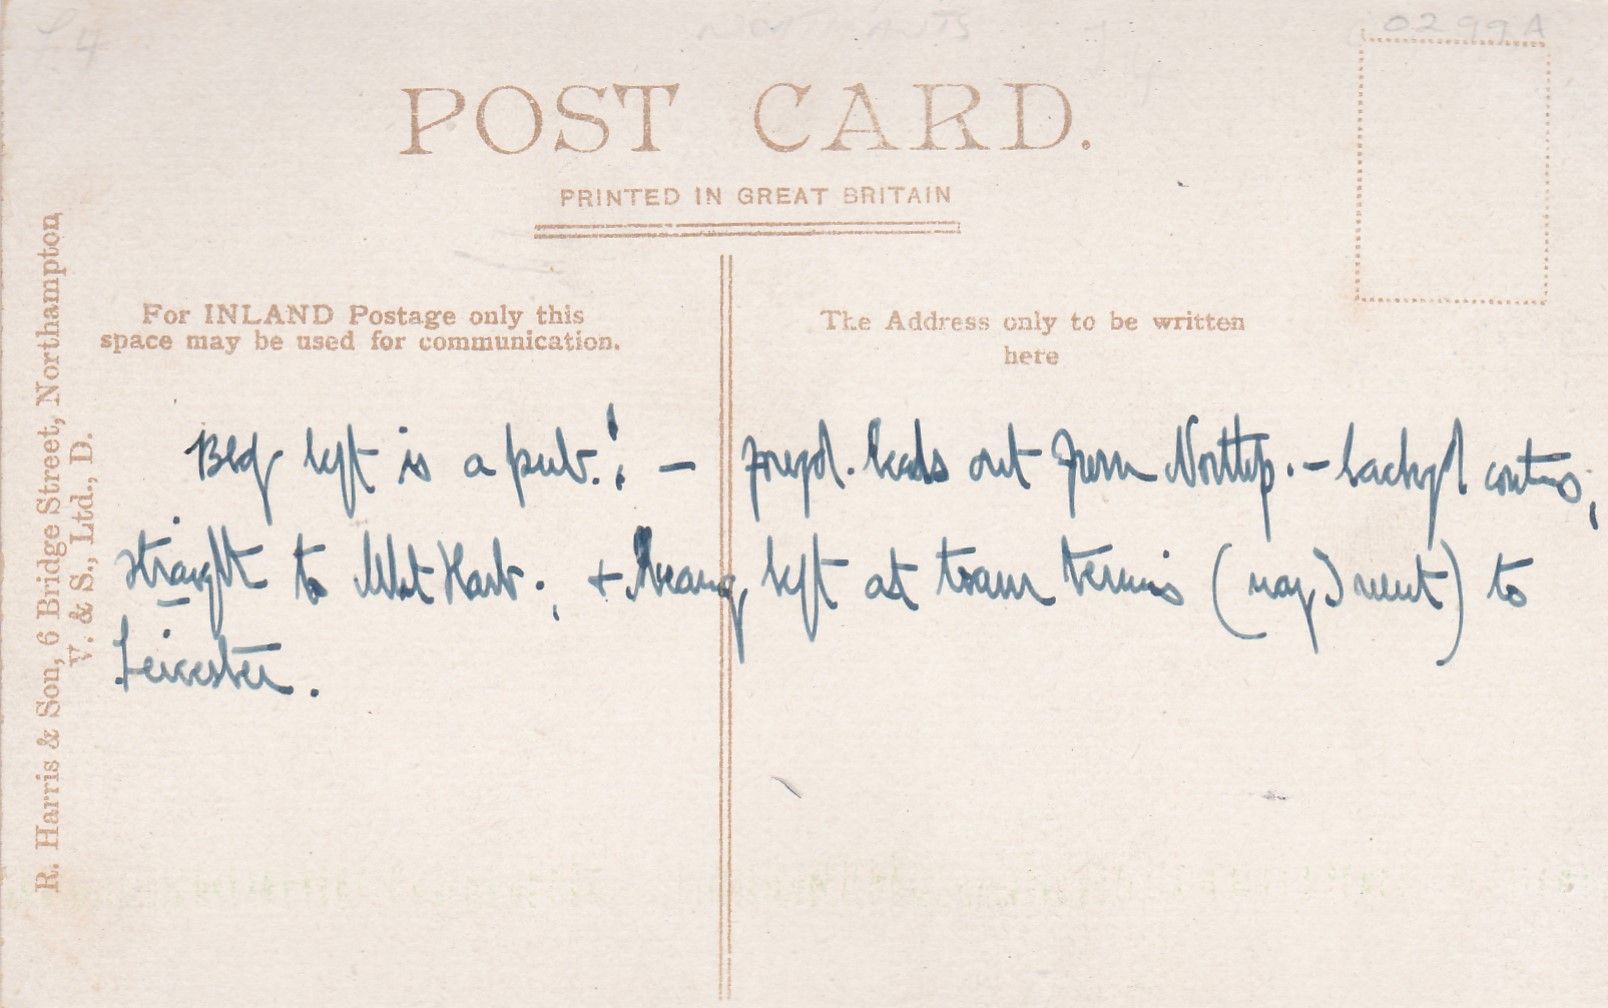 £4
NORTHANTS
0299A
POST CARD.
PRINTED IN GREAT BRITAIN
For INLAND Postage only this
space may be used for communication.
The Address only to be written
here
R. Harris & Son, 6 Bridge Street, Northampton
V. & S., Ltd., D.
Bldg left is a pub.! — leads out from Northtp. — contins,
straight to Mkt Harb., + left at tram terminus to
Leicester.